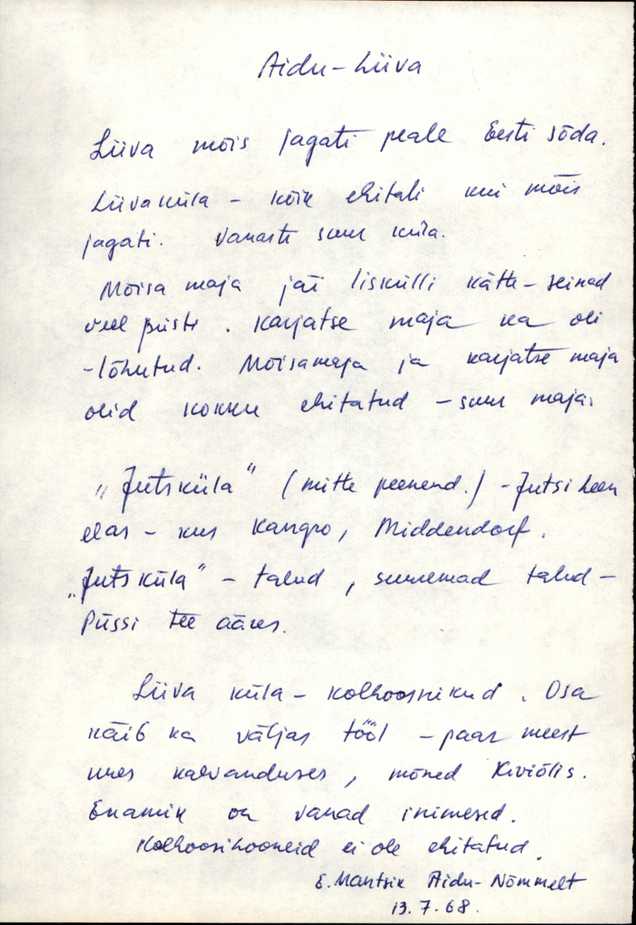 Aidu-Liiva
Liiva mõis jagati peale Eesti sõda.
Liivaküla - kõik ehitati kui mõis
jagati. Vanasti suur küla.
Mõisa maja jäi Liskülli kätte - seinad
veel püsti. Karjatse maja ka oli
- lõhutud. Mõisamaja ja karjatse maja
olid kokku ehitatud - suur maja.
„Jutsküla" (mitte peenend.) - Jutsi
elas - kus Kangro, Middendorf.
„Jutsküla" - talud, suuremad talud -
Püssi tee ääres.
Liiva küla - kolhoosnikud. Osa
käib ka väljas tööl - paar meest
uues kaevanduses, mõned Kiviõlis.
Enamik on vanad inimesed.
Kolhoosihooneid ei ole ehitatud.
E. Mantsik Aidu-Nõmmelt
13.7.68.